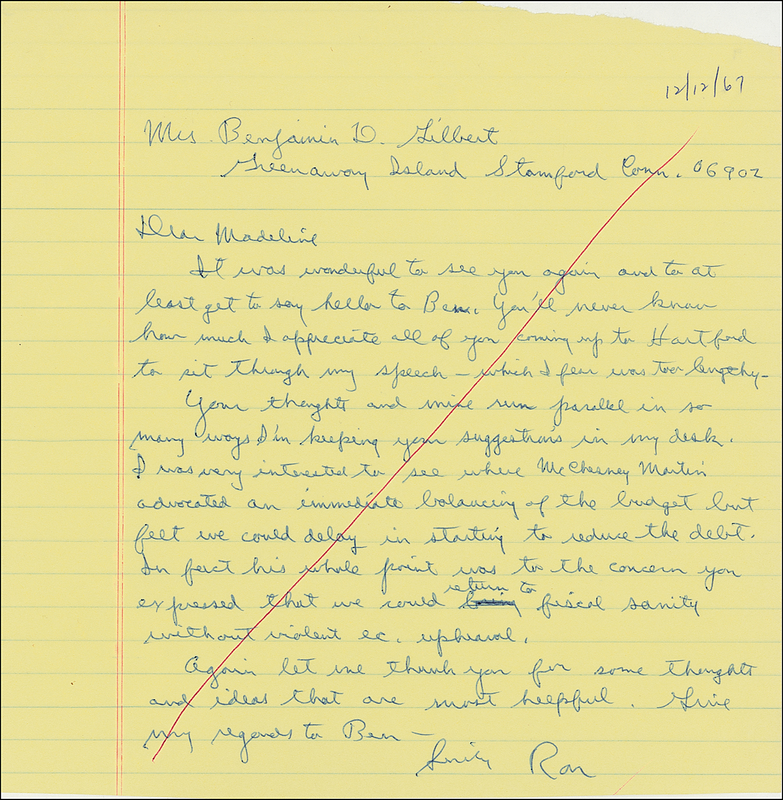 12/12/67
Mrs Benjamin D. Gilbert
Greenaway Island Stamford Conn. 06902
Dear Madeline
It was wonderful to see you again and to at
least get to say hello to Ben. You'll never know
how much I appreciate all of you coming up to Hartford
to sit through my speech – which I fear was too lengthy –
Your thoughts and mine run parallel in so
many ways I'm keeping your suggestions in my desk.
I was very interested to see where McChesney Martin
advocated an immediate balancing of the budget but
felt we could delay in starting to reduce the debt.
In fact his whole point was to the concern you
return to
expressed that we could fiscal sanity
without violent ec. upheaval.
Again let me thank you for some thoughts
and ideas that are most helpful. Give
my regards to Ben –
Ron